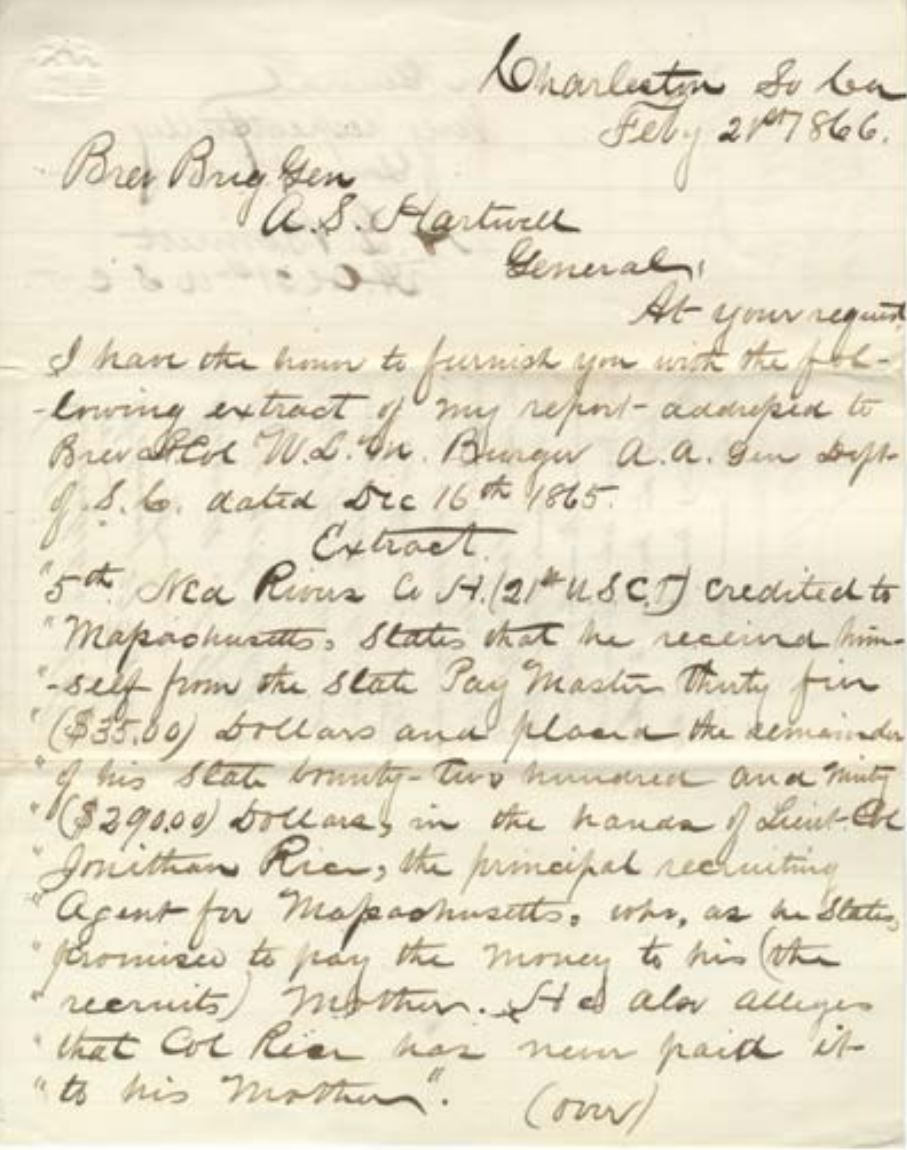 Charleston So Ca
Feby 21st 1866.
Brev Brig Gen
A. S. Hartwell
General,
At your request
I have the honor to furnish you with the fol-
-lowing extract of my report - addressed to
Brev Lt Col W. L. M. Burger A. A. Gen Dept
of S. C. dated Dec 16th 1865.
Extract.
"5th Ned Rivers Co H. (21st U.S.C.T) credited to
"Massachusetts, States that he received him-
"-self from the State Pay Master Thirty five
"($35.00) Dollars and placed the remainder
"of his State bounty - two hundred and ninty
"($290.00) Dollars, in the hands of Lieut. Col
"Jonithan Rice, the principal recruiting
"Agent for Massachusetts, who, as he States,
"promised to pay the money to his (the
"recruits) Mother. He also alleges
"that Col Rice has never paid it
"to his Mother".
(over)